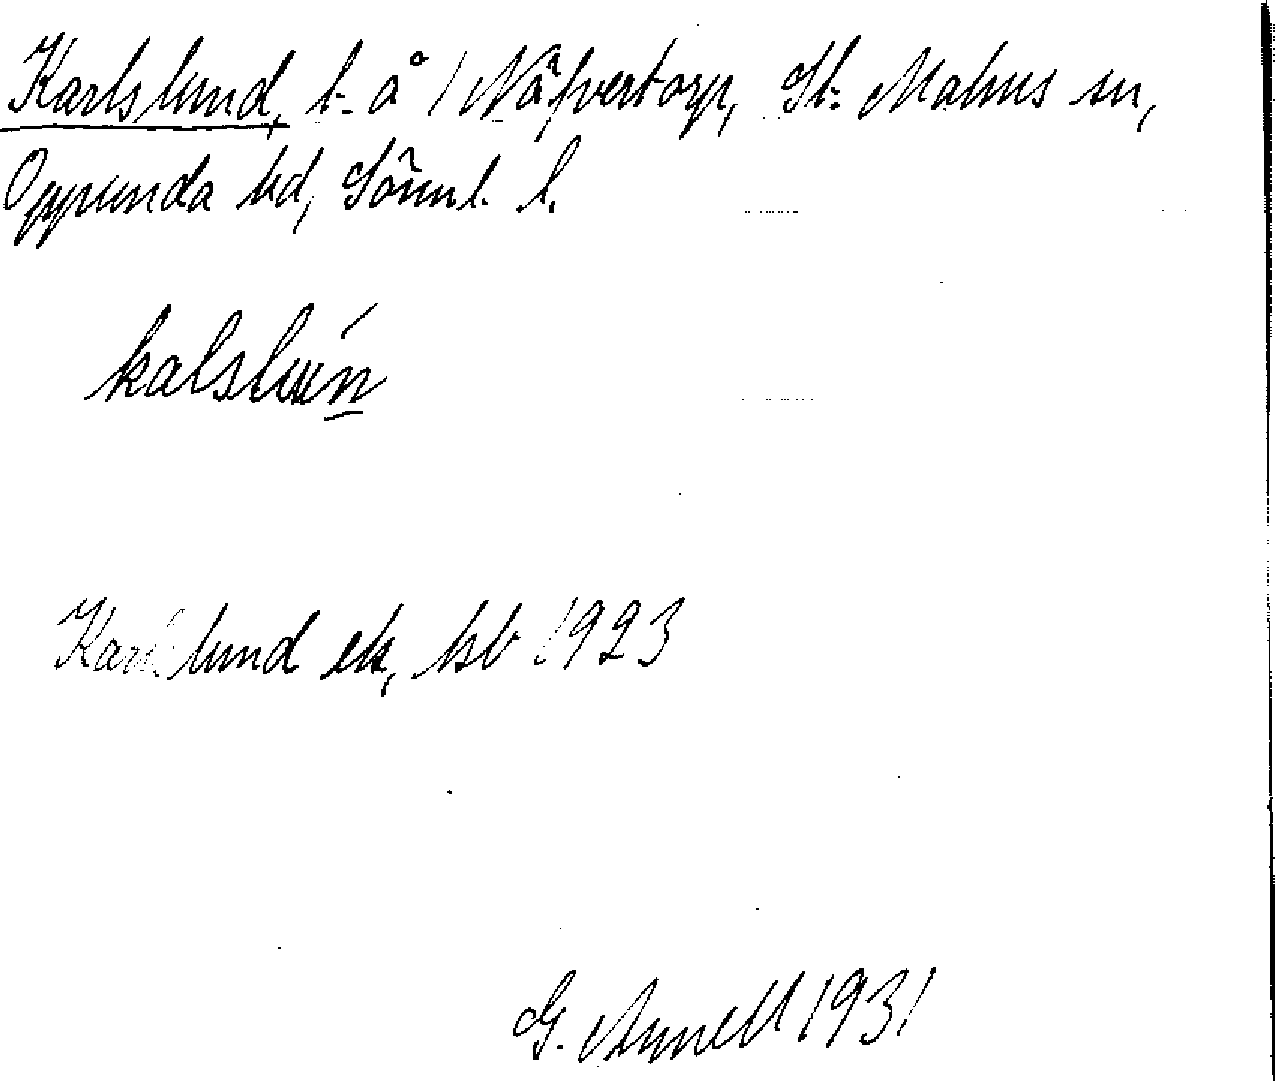 Karlslund, t. å 1 Näfvertorp, St. Malms sn,
Oppunda hd, Söml. l.
kalsluń̲
Karlslund ek, hsb 1923
G. Annell 1931